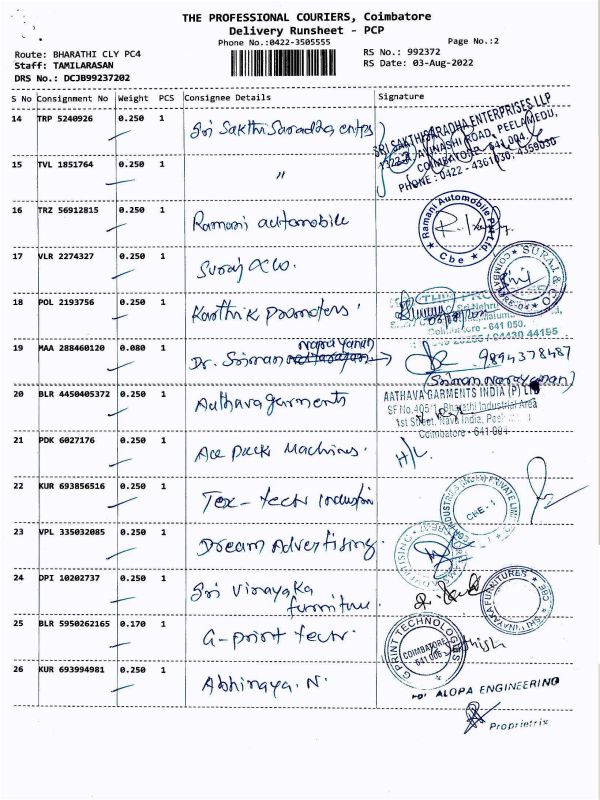 THE PROFESSIONAL COURIERS, Coimbatore
Delivery Runsheet - PCP
Phone No.:0422-3505555
Page No.:2
Route: BHARATHI CLY PC4
RS No.: 992372
Staff: TAMILARASAN
RS Date: 03-Aug-2022
DRS No.: DCJB99237202
S No Consignment No Weight PCS Consignee Details Signature
14 TRP 5240926 0.250 1 Sri Sakthi Saradha entps
SRI SAKTHI SARADHA ENTERPRISES LLP
AVINASHI ROAD, PEELAMEDU,
COIMBATORE - 641 004.
PHONE : 0422 - 4361030, 4359030
15 TVL 1851764 0.250 1 "
16 TRZ 56912815 0.250 1 Ramani automobile
Ramani Automobile Pvt Ltd
Cbe
17 VLR 2274327 0.250 1 Suraj & co.
SURAJ & CO
18 POL 2193756 0.250 1 Karthik promoters
641 050.
19 MAA 288460120 0.080 1 Dr. Sriman narayanan
9894378487
(Sriman Narayanan)
20 BLR 4450405372 0.250 1 Aathava garments
AATHAVA GARMENTS INDIA (P) LTD
SF No.405/1, Bharathi Industrial Area
1st Street, Nava India,
Coimbatore - 641 004
21 PDK 6027176 0.250 1 Ace pack Machines
H/L
22 KUR 693856516 0.250 1 Tex-tech
PRIVATE
CBE - 1
23 VPL 335032085 0.250 1 Dream Advertising
24 DPI 10202737 0.250 1 Sri Vinayaka
furniture
SRI VINAYAKA FURNITURES CBE
25 BLR 5950262165 0.170 1 G-print tech
G PRINT TECHNOLOGIES
COIMBATORE
641 006
26 KUR 693994981 0.250 1 Abhinaya. N.
ALOPA ENGINEERING
Proprietrix